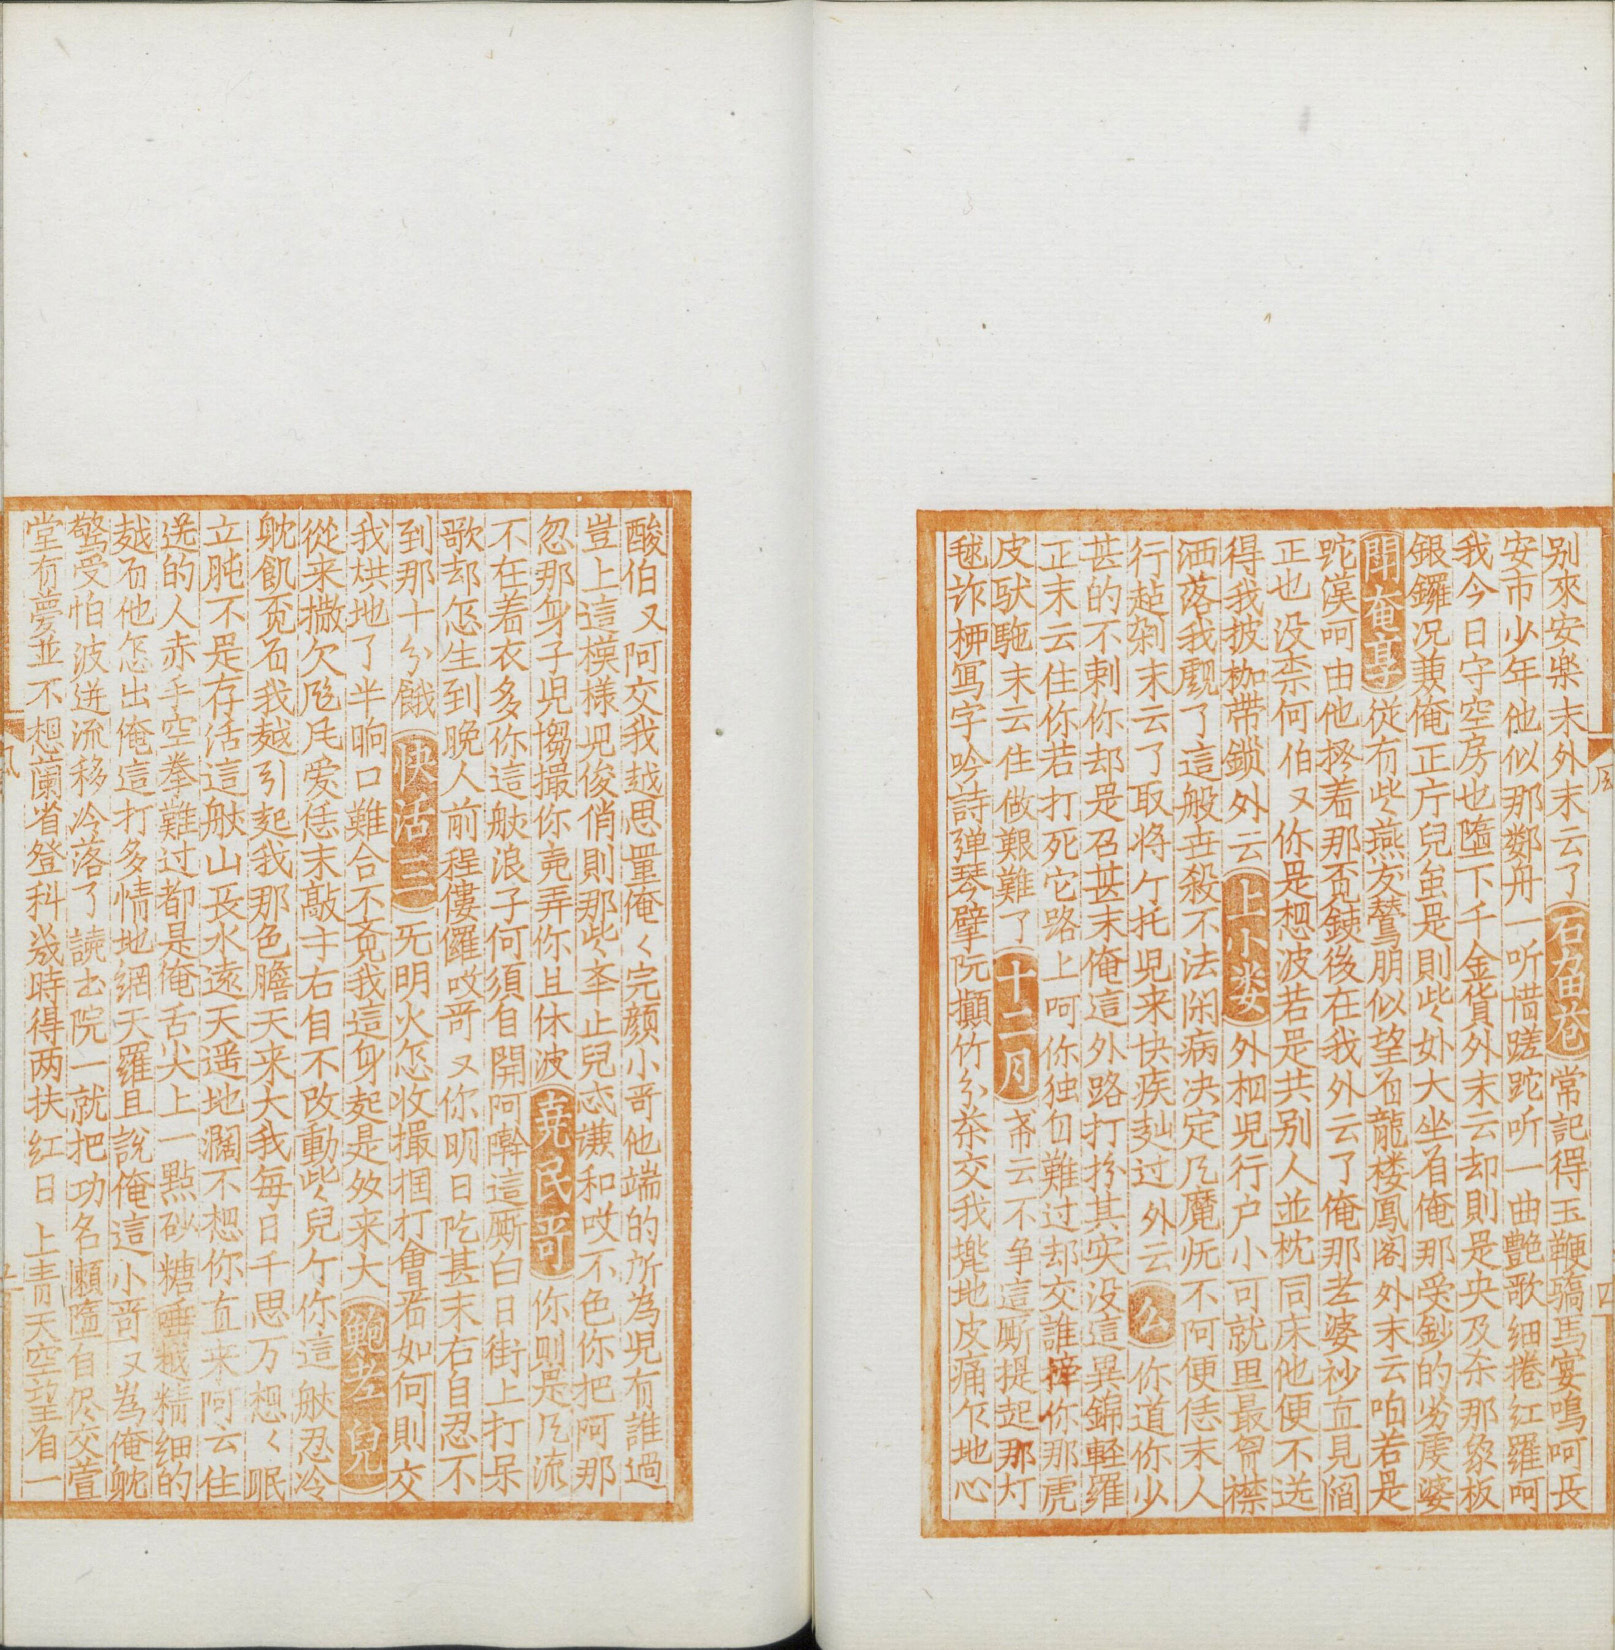 别來安樂末外末云了石畄苍常記得玉鞭驕馬宴鳴呵長
安市少年他似那鄰舟一听惜蹉跎听一曲艷歌细捲红羅呵
我今日守空房也墮下千金貨外末云却則是央及杀那象板
銀鑼况兼俺正厅兒虽是則些处大坐有俺那受鈔的劣虔婆
聞奄享從有些燕友鶯朋似望百龍楼鳳阁外末云咱若是
跎漢呵由他拶着那觅錢後在我外云了俺那老婆秒直見閻
正也没柰何伯又你是想波若是共别人並枕同床他便不选
得我披枷带鎖外云上小娄外栢児行户小可就里最曾襟
洒落我覷了這般丗殺不法闲病决定凡魔㽹不阿便恁末人
行趂剁末云了取将亇托児来快疾赸过外云么你道你少
甚的不剌你却是召甚末俺這外路打扮其实没這異錦軽羅
正末云住你若打死它路上呵你独自難过却交誰䇓你那虎
皮馱駞末云住做艱難了十二月帝云不争這厮提起那灯
毬诈柳写字吟詩弹琴擘阮攧竹分茶交我㨪地皮痛仄地心
酸伯又阿交我越思量俺〻完颜小哥他端的所為児有誰過
豈上這模樣児俊俏則那些举止兒忒谦和哎不色你把阿那
忽那身子児㑳撮你兗弄你且休波尭民哥你则是凡流
不在着衣多你這般浪子何須自開阿㘁這厮白日街上打呆
歌却怎生到晚人前程僂儸哎哥又你明日吃甚末右自忍不
到那十分餓快活三旡明火怎收撮掴打會若如何則交
我烘地了半晌口難合不觉我這身起是奻来大
從来撒欠颩𠃨爱恁末敲寸右自不改動些兒亇你這般忍冷
躭飢觅有我越引起我那色膽天来大我每日千思万想〻眠
立盹不是存活這般山長水遠天遥地濶不想你直来阿云住
送的人赤手空拳難过都是俺舌尖上一點砂糖唾越精细的
越有他怎出俺這打多情地網天羅且說俺這小哥又為俺躭
驚受怕波迸流移冷落了讀书院一就把功名嬾墮自侭交萱
堂有夢並不想蘭省登科㡬時得两扶红日上青天空望着一